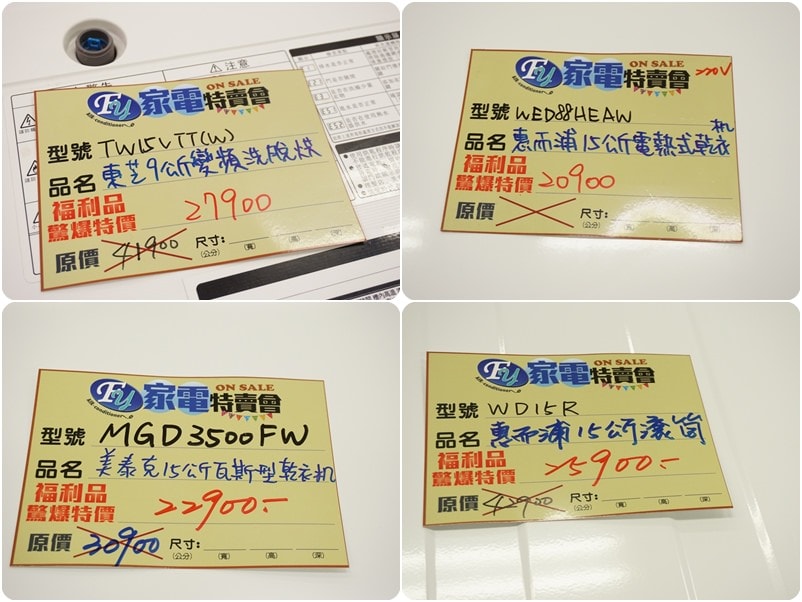 注意
FY 家電特賣會
ON SALE
Air conditioner
型號 TW15VTT(W)
品名 東芝9公斤變頻洗脫烘
福利品
驚爆特價 27900
原價 41900 尺寸: (公分) (寬) (高) (深)
FY 家電特賣會
ON SALE
Air conditioner
220V
型號 WED88HEAW
品名 惠而浦15公斤電熱式乾衣机
福利品
驚爆特價 20900
原價 尺寸: (公分) (寬) (高) (深)
FY 家電特賣會
ON SALE
Air conditioner
型號 MGD3500FW
品名 美泰克15公斤瓦斯型乾衣机
福利品
驚爆特價 22900.-
原價 30900 尺寸: (公分) (寬) (高) (深)
FY 家電特賣會
ON SALE
Air conditioner
型號 WD15R
品名 惠而浦15公斤滾筒
福利品
驚爆特價 25900.-
原價 42900 尺寸: (公分) (寬) (高) (深)